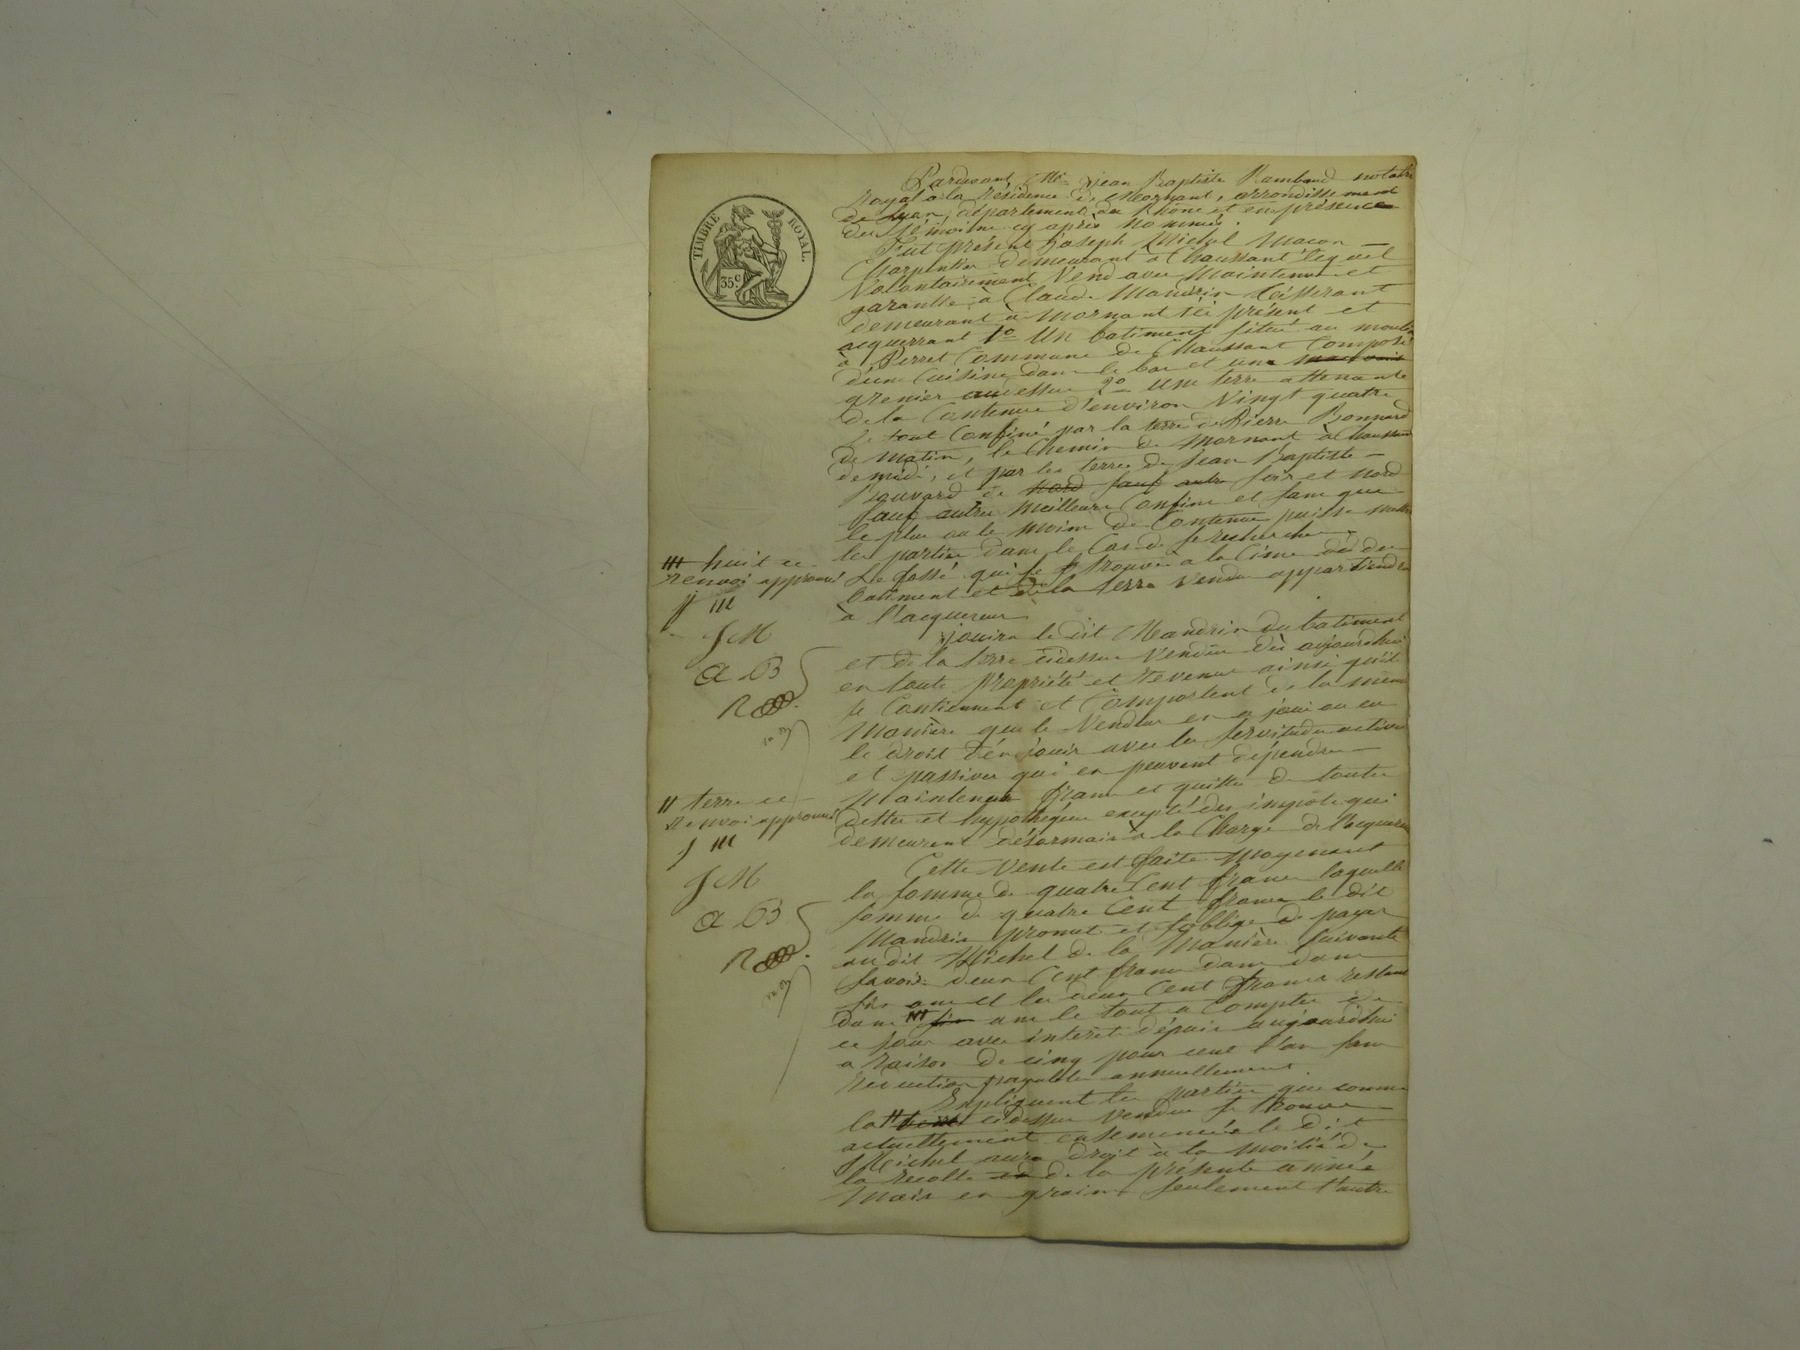 TIMBRE ROYAL.
35c
Pardevant Me Jean Baptiste Rambaud notaire
royal à la résidence de Mornant, arrondissement
de Lyon, département du Rhône et en présence
des témoins cy après nommés
Fut présent Joseph Michel Macon
Charpentier demeurant à Chaussant lequel
Volontairement Vend avec Maintenue et
garantie à Claude Mandrin Tisserant
demeurant à Mornant ici présent et
acquerrant 1o Un batiment situé au moulin
à Perret Commune de Chaussant Composé
d'une Cuisine dans le bas et une
grenier au dessus 2o une terre attenante
de la Contenue d'environ Vingt quatre
le tout Confiné par la terre de Pierre Bonnard
de matin, le Chemin de Mornant à Chaussant
de midi, et par les terres de Jean Baptiste
de nord sauf autre soir et nord
sauf autres Meilleurs Confins et sans que
le plus ou le moins de Contenue puisse mettre
les parties dans le Cas de se rechercher.
Le fossé qui se trouve à la Cime du dit
batiment et de la terre Vendue appartiendra
à l'acquereur
jouira le dit Mandrin du batiment
et de la terre cidessus Vendue dès aujourdhui
en toute propriété et revenus ainsi qu'ils
se Contiennent et Comportent de la même
Manière que le Vendeur en a joui ou eu
le droit d'en jouir avec les servitudes actives
et passives qui en peuvent dépendre
Maintenus franc et quitte de toutes
dettes et hypothèques excepté des impots qui
demeurent désormais à la Charge de l'acquereur
Cette Vente est faite Moyenant
la somme de quatre Cent francs laquelle
somme de quatre Cent francs le dit
Mandrin promet et s'oblige de payer
au dit Michel de la Manière suivante
savoir deux Cent francs dans dans
six ans et les deux Cent francs restant
dans six ans le tout à Compter de
ce jour avec intérêt dépuis aujourdhui
a raison de cinq pour cent l'an sans
payable annuellement.
Expliquent les parties que comme
la cidessus Vendue se trouve
actuellement ensemencée le dit
Michel aura droit à la moitié de
la récolte de la présente année
Mais en grains seulement l'autre
huit ce
renvoi approuvé
J M
J M
a B
R
terre ce
renvoi approuvé
J M
J M
a B
R